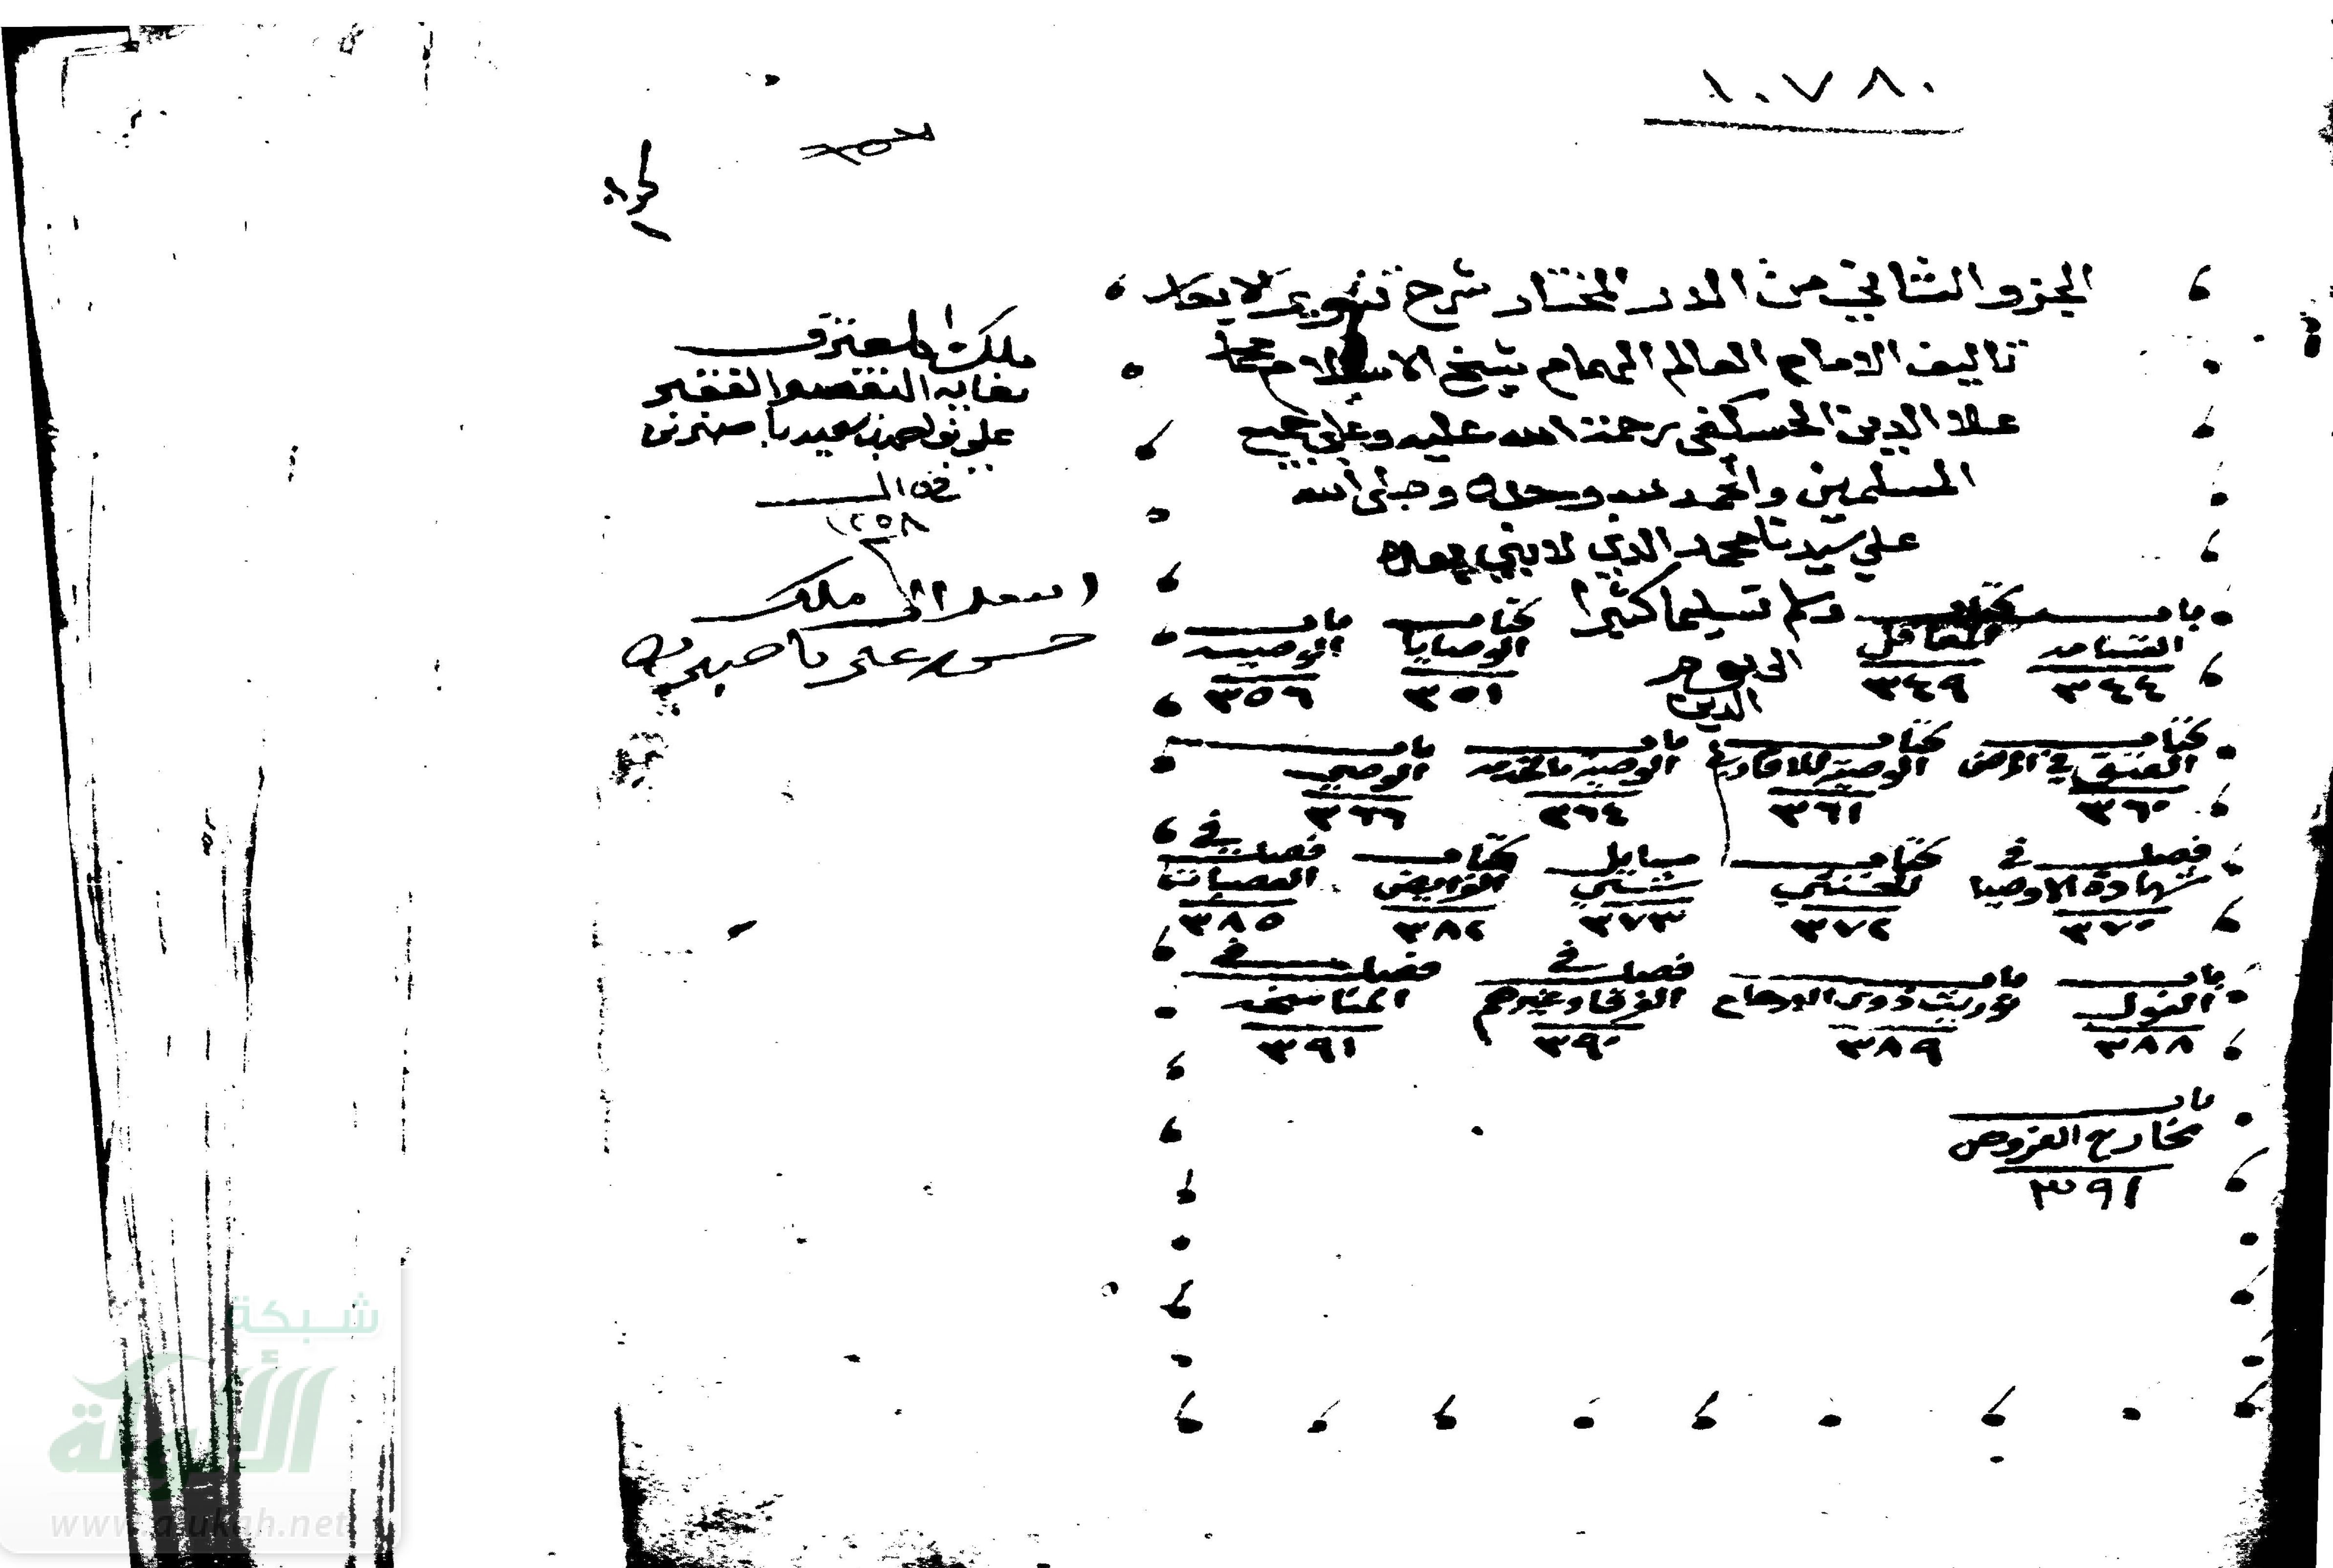 ١٠٧٨٠
الجزو الثاني من الدر المختار شرح تنوير الابصار
تاليف الامام العالم الهمام شيخ الاسلام محمد
علاء الدين الحسكفي رحمة الله عليه وعلى جميع
المسلمين والحمد لله وحده وصلى الله
على سيدنا محمد الذي لا نبي بعده
وسلم تسليما كثيرا
الى يوم
الدين
باب القسامه ٣٤٤
كتاب المعاقل ٣٤٩
كتاب الوصايا ٣٥١
باب الوصيه ٣٥٦
كتاب العتق في المرض ٣٦٠
كتاب الوصية للاقارب ٣٦١
باب الوصيه بالخدمه ٣٦٤
باب الوصي ٣٦٦
فصل في شهادة الاوصيا ٣٧٠
كتاب الخنثي ٣٧٢
مسايل شتي ٣٧٣
كتاب الفرايض ٣٨٢
فصل في العصبات ٣٨٥
باب العول ٣٨٨
باب توريث ذوى الارحام ٣٨٩
فصل في الغرقا وغيرهم ٣٩٠
فصل في المناسخه ٣٩١
باب مخارج الفروض ٣٩١
ملك المعترف
الفقير
علي بن احمد بن سعيد باصبرين
١٢٥٨
ملك
علي باصبرين
شبكة
الألوكة
www.alukah.net